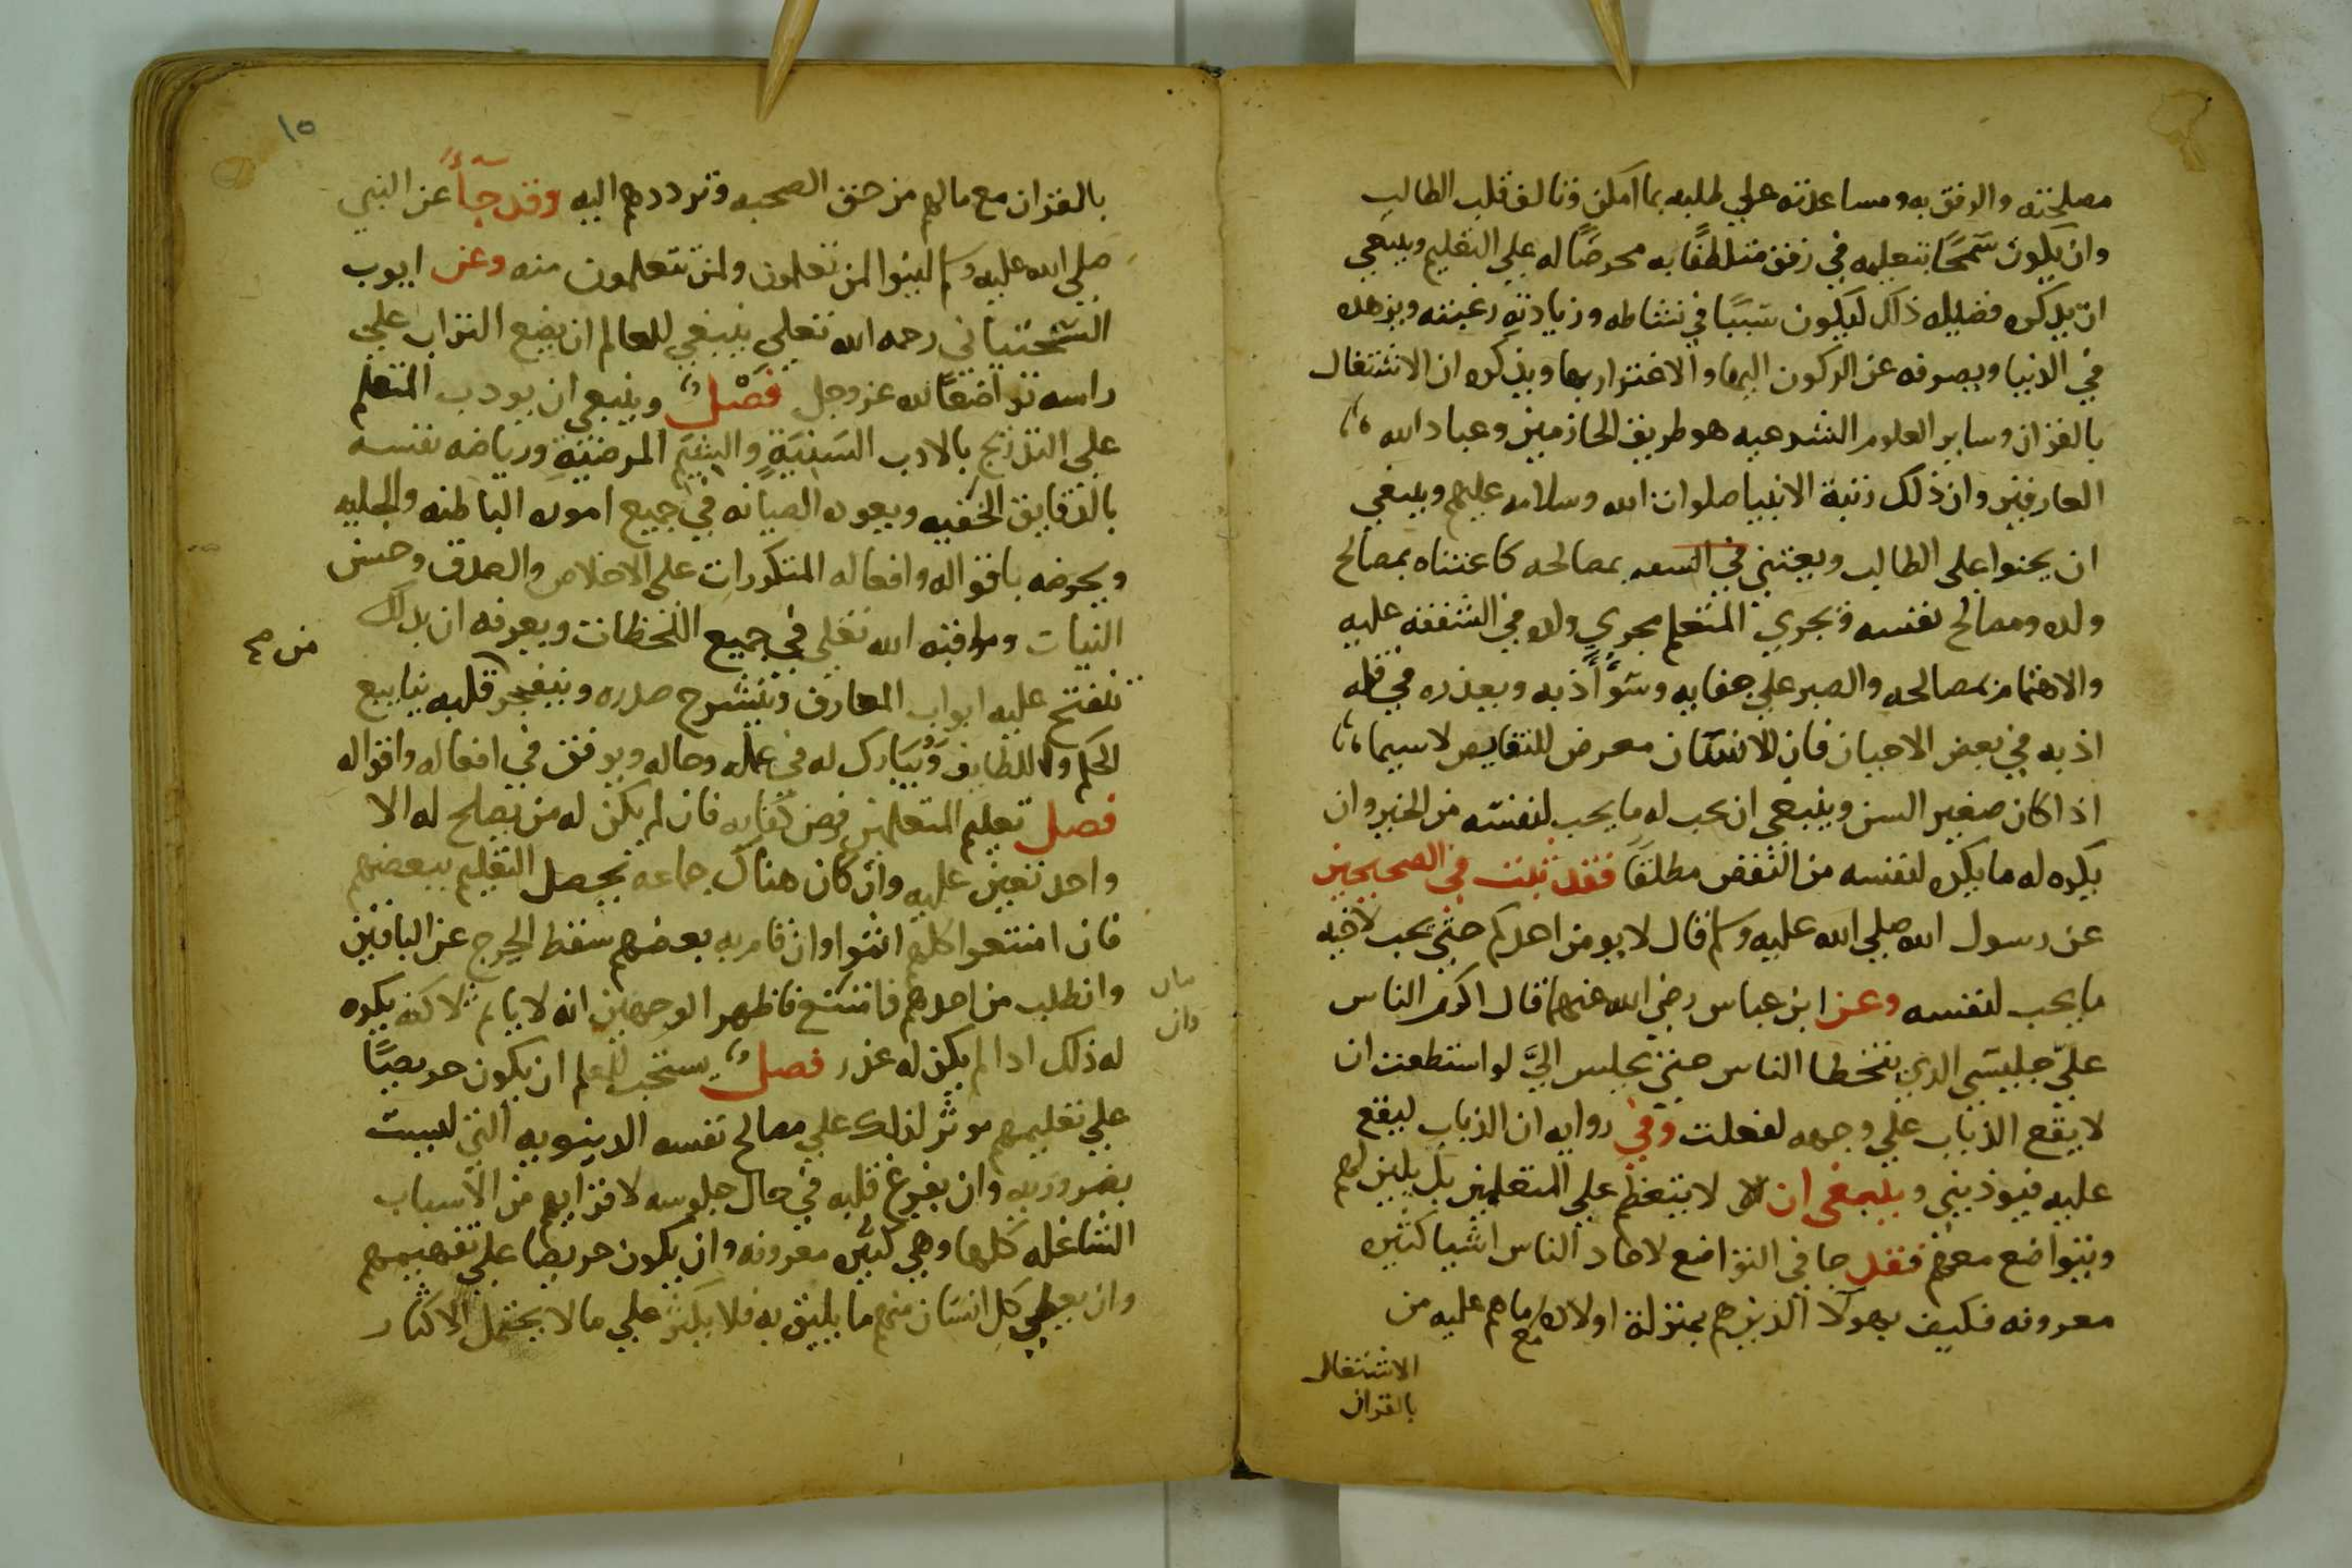 مصلحته والرفق به ومساعدته علي طلبه بما امكن وتالف قلب الطالب
وان يكون سَمحًا بتعليمه في رفق متلطفًا به محرضًا له علي التعليم وينبغي
ان يذكره فضيله ذلك ليكون سَببًا في نشاطه وزيادته رغبته ويزهده
في الدنيا ويصرفه عن الركون اليها والاغترار بها ويذكره ان الاشتغال
بالقران وساير العلوم الشرعيه هو طريق الحازمين وعباد الله
العارفين وان ذلك رتبة الانبيا صلوات الله وسلامه عليهم وينبغي
ان يحنوا علي الطالب ويعتني في السعه بمصالحه كاعتناه بمصالح
ولده ومصالح نفسه ويجري المتعلم مجري ولده في الشفقه عليه
والاهتمام بمصالحه والصبر علي جفايه وسَوُّ أذبه ويعذره في قله
اذبه في بعض الاحيان فان الانسان معرض للنقايص لاسيما
اذا كان صغير السن وينبغي ان يحب له ما يحب لنفسه من الخير وان
يكره له ما يكره لنفسه من النقص مطلقًا فقد ثبت في الصحيحين
عن رسول الله صلي الله عليه وسلم قال لا يومن احدكم حتي يحب لاخيه
ما يحب لنفسه وعن ابن عباس رضي الله عنهما قال اكرم الناس
عليّ جليسَي الذي يتخطا الناس حتي يجلس اليَّ لو استطعت ان
لا يقع الذباب علي وجهه لفعلت وفي روايه ان الذباب ليقع
عليه فيوذيني وينبغي ان لا لا يتعظم علي المتعلمين بل يلين لهم
ويتواضع معهم فقد جا في التواضع لاحاد الناس اشيا كثيره
معروفه فكيف بهولآ الذين هم بمنزلة اولاده مع ماهم عليه من
الاشتغال
بالقران
١٥
بالقران مع مالهم من حق الصحبه وترددهم اليه وقد جآءَ عن النبي
صلي الله عليه وسلم لينوا لمن تعلمون ولمن تتعلمون منه وعن ايوب
السَّختياني رحمه الله تعلي ينبغي للعالم ان يضع التراب علي
راسه تواضعًا لله عز وجل فصْل وينبعي ان يودب المتعلم
علي التدريج بالادب السَنيَةِ والشيَم المرضيَّةِ ورياضه نفسه
بالدقايق الخفيه ويعوده الصيانه في جميع اموره الباطنه والجليه
ويحرضه باقواله وافعاله المتكررات علي الاخلاص والصدق وحسن
النيات ومراقبة الله تعلي في جميع اللحظات ويعرفه ان بذلك
من صح
تنفتح عليه ابواب المعارف وينشرح صدره وينفجر قلبه ينابيع
الحكم واللطايف وَيُبَارك له في عمله وحاله ويوفق في افعاله واقواله
فصل تعليم المتعلمين فرض كفايه فان لم يكن له من يصلح له الا
واحد تعين عليه وان كان هناك جماعه يحصل التعليم ببعضهم
فان امتنعوا كلهم اثموا وان قام به بعضهم سقط الحرج عن الباقين
وان طلب من احدهم فامتنع فاظهر الوجهين انه لا ياثم لاكنه يكره
وان
له ذلك اذا لم يكن له عذر فصل يستحب للمعلم ان يكون حريصًا
علي تعليمهم موثر لذلك علي مصالح نفسه الدينويه التي ليست
بضروريه وان يفرغ قلبه في حال جلوسه لاقرايهم من الاسباب
الشاغله كلها وهي كثيره معروفه وان يكون حريصا علي تفهيمهم
وان يعطي كل انسَان منهم ما يليق به فلا يكثر علي مالا يحتمل الاكثار